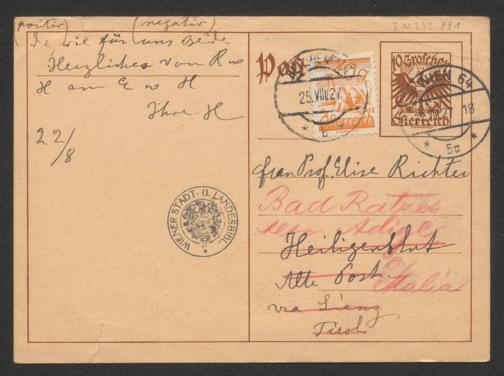 I.N. 232.881
(positiv) (negativ)
Je wie für uns Beide
Herzliches von R u
H am E u H
Ihre H
22/8
WIENER STADT- U. LANDESBIBL.
Pos
10 Groschen
Österreich
25.VIII.27
WIEN 64
18
5c
Frau Prof. Elise Richter
Bad Ratzes
Heiligenblut
Alte Post
Italia
via Lienz
Tirol